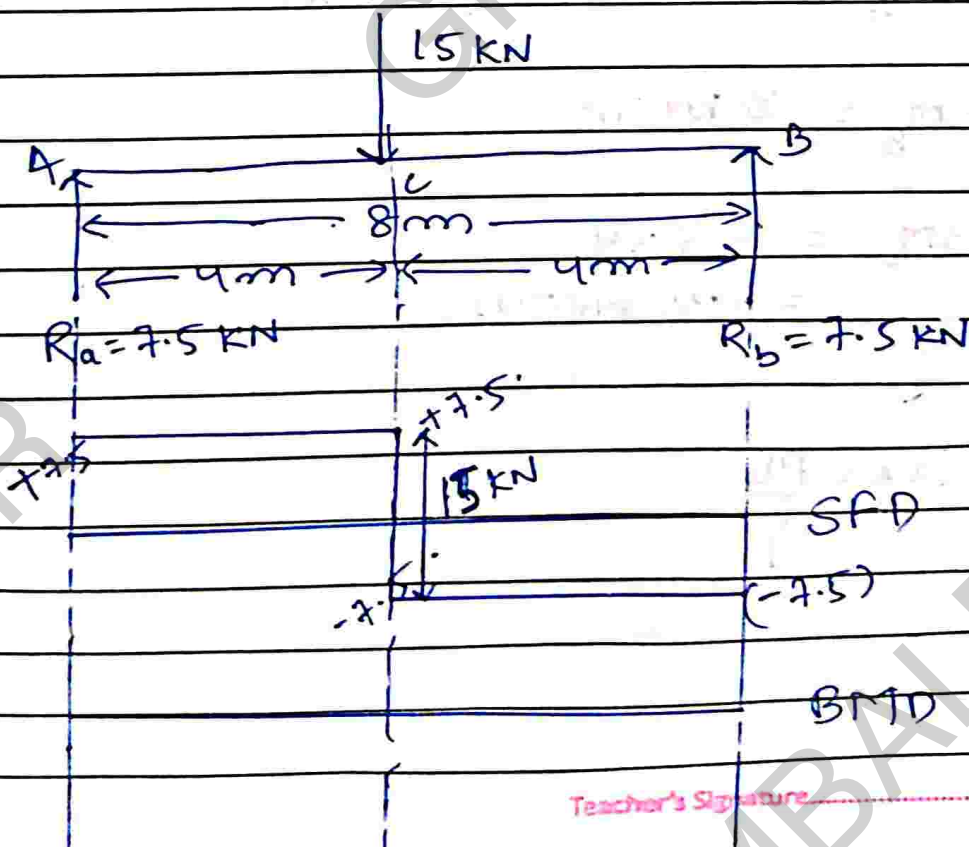 15 KN
A
B
C
8m
4m
4m
Ra = 7.5 KN
Rb = 7.5 KN
+7.5
+7.5
15 KN
SFD
-7.5
(-7.5)
BMD
Teacher's Signature